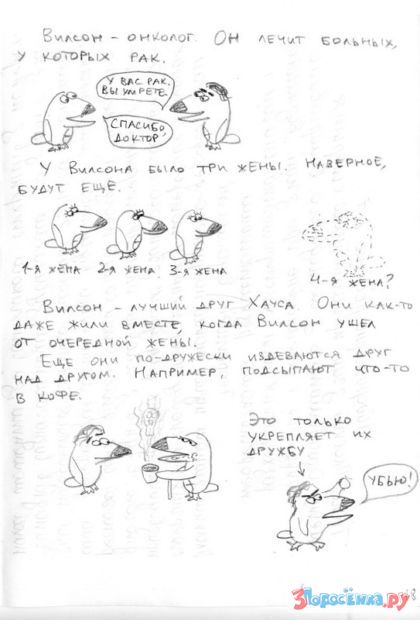 Вилсон - онколог. Он лечит больных,
у которых рак.
У вас рак.
Вы умрете.
Спасибо,
доктор
У Вилсона было три жены. Наверное,
будут еще.
1-я жена 2-я жена 3-я жена
4-я жена?
Вилсон - лучший друг Хауса. Они как-то
даже жили вместе, когда Вилсон ушел
от очередной жены.
Еще они по-дружески издеваются друг
над другом. Например, подсыпают что-то
в кофе.
Это только
укрепляет их
дружбу
Убью!
3Поросёнка.ру